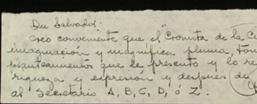 Dr Salvador:
Creo conveniente que el "Cronista de la C
imaginación y magnífica pluma, tom
planteamiento que le presento y lo re
riqueza y expresión y después de
al Secretario A, B, C, D, ó Z.